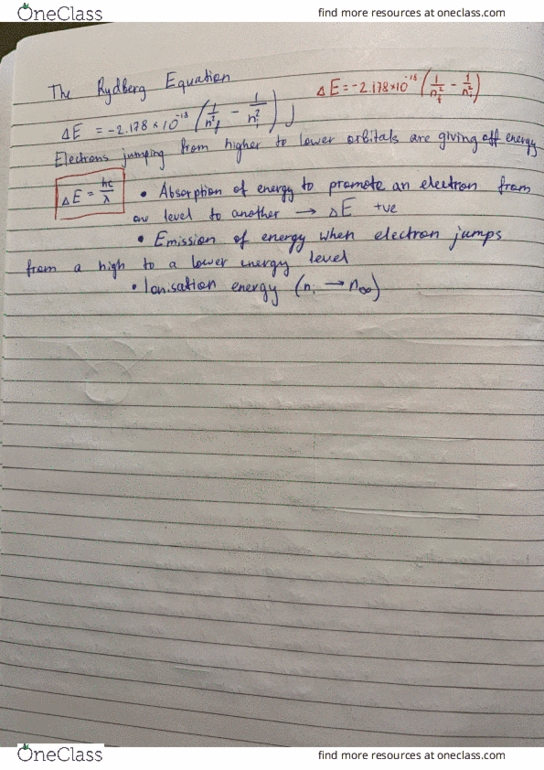 OneClass find more resources at oneclass.com
The Rydberg Equation
ΔE = -2.178×10⁻¹⁸ (1/n²f - 1/n²i)
ΔE = -2.178 × 10⁻¹⁸ (1/n²f - 1/n²i) J
Electrons jumping from higher to lower orbitals are giving off energy
ΔE = hc/λ • Absorption of energy to promote an electron from
level to another → ΔE +ve
• Emission of energy when electron jumps
from a high to a lower energy level
• Ionisation energy (n₁ → n∞)
OneClass find more resources at oneclass.com